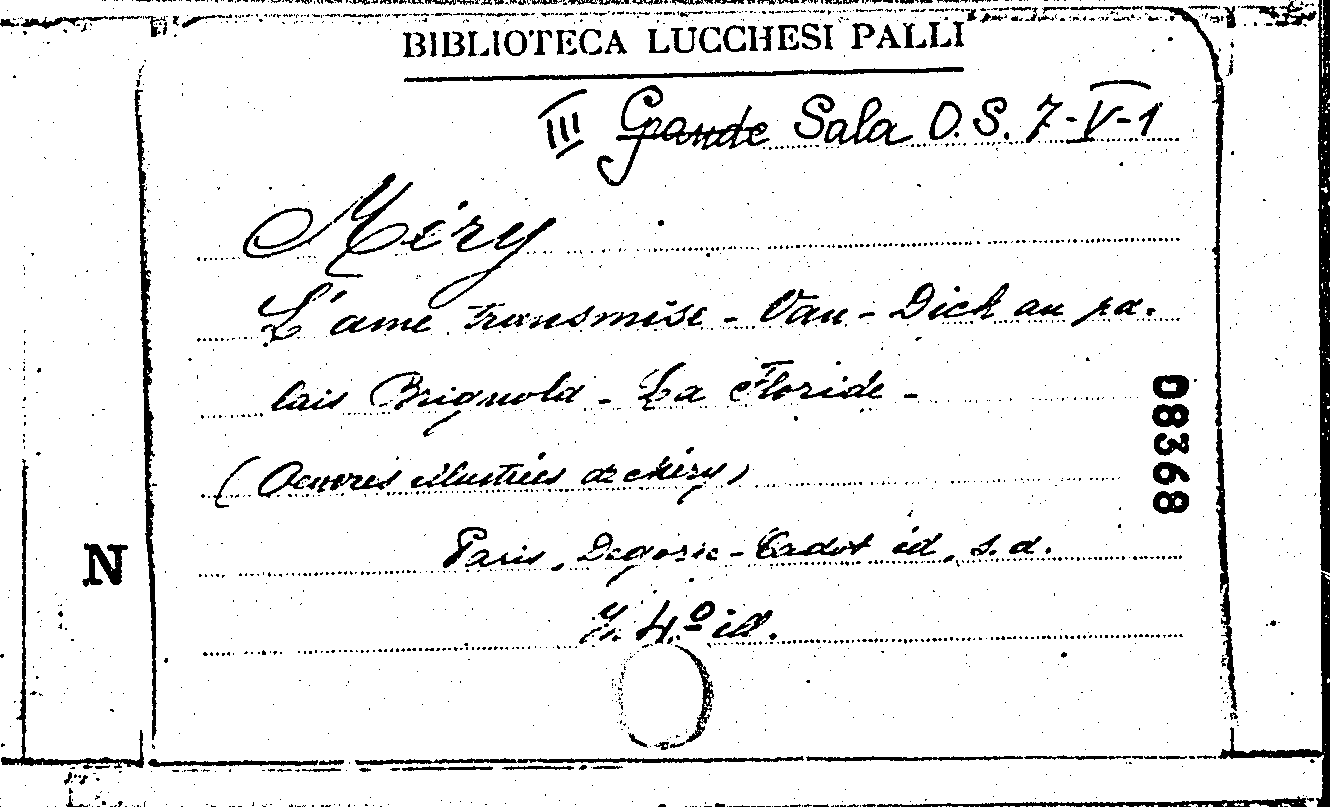 BIBLIOTECA LUCCHESI PALLI
III Grande Sala O.S. 7-V-1
Méry
L'ame transmise - Van-Dick au pa-
lais Brignola - La Floride -
(Oeuvres illustrées de Méry)
Paris, Degorce-Cadot éd, s.d.
In 4º ill.
08368
N